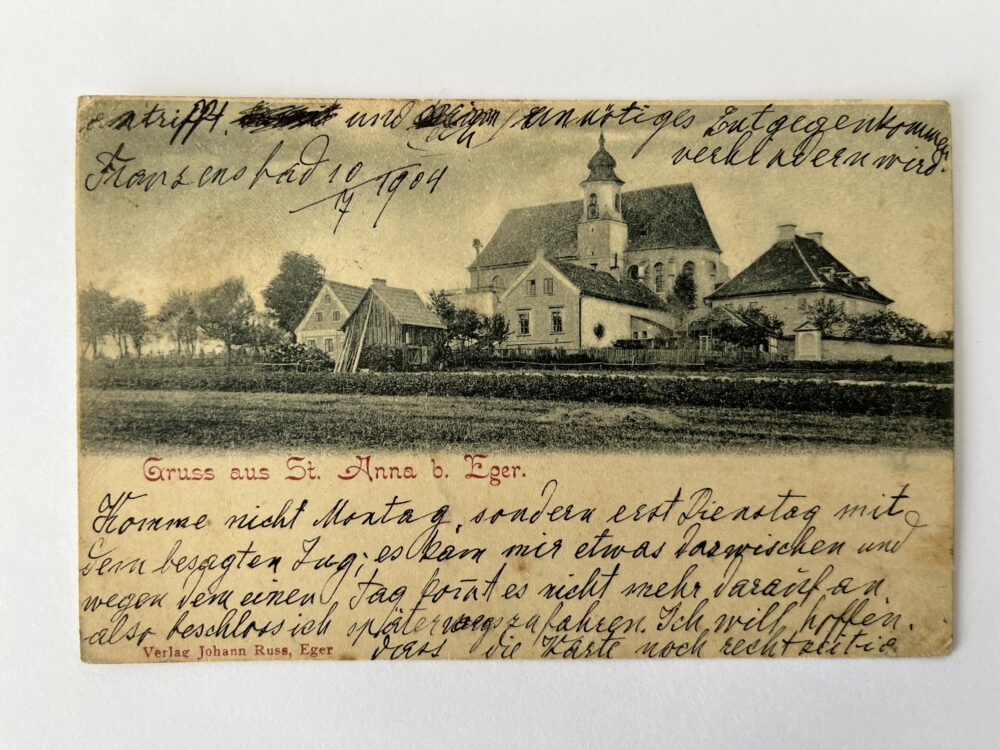 eintrifft. und ein unnötiges Entgegenkommen
verhindern wird.
Franzensbad 10/7 1904
Gruss aus St. Anna b. Eger.
Komme nicht Montag, sondern erst Dienstag mit
dem besagten Zug; es kam mir etwas dazwischen und
wegen dem einen Tag kom̄t es nicht mehr darauf an,
also beschloss ich später zu fahren. Ich will hoffen,
dass die Karte noch rechtzeitig
Verlag Johann Russ, Eger